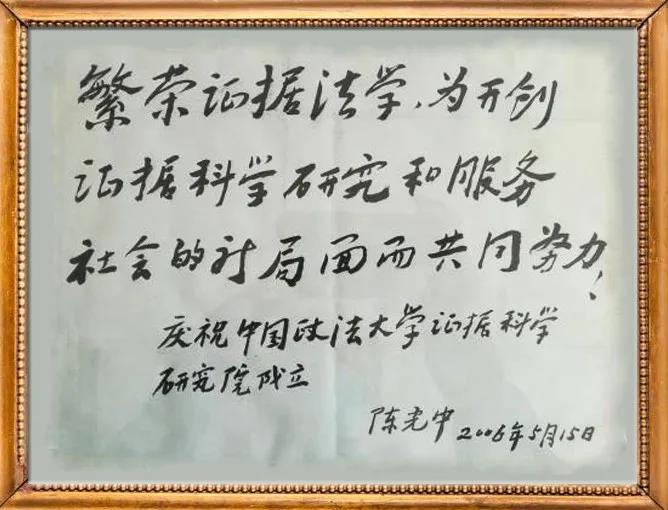 繁荣证据法学，为开创
证据科学研究和服务
社会的新局面而共同努力！
庆祝中国政法大学证据科学
研究院成立
陈光中 2006年5月15日